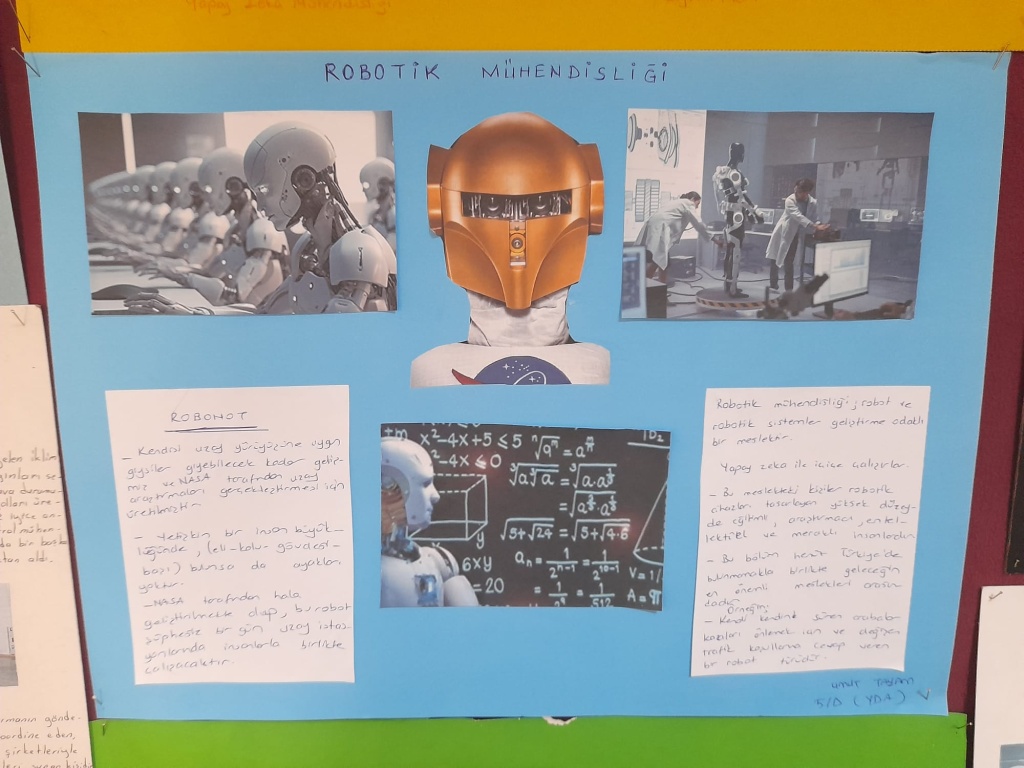 Yapay Zeka Mühendisliği
ROBOTİK MÜHENDİSLİĞİ
ROBONOT
- Kendisi uzay yürüyüşüne uygun
giysiler giyebilecek kadar geliş-
miş ve NASA tarafından uzay
araştırmaları gerçekleştirmesi için
üretilmiştir.
- Yetişkin bir insan büyük-
lüğünde, (eli-kolu-gövdesi-
başı) bulunsa da ayakları
yoktur.
- NASA tarafından hala
geliştirilmekte olup, bu robot
şüphesiz bir gün uzay istas-
yonlarında insanlarla birlikte
çalışacaktır.
x²-4x+5≤5 ⁿ√aⁿ = a
²-4x≤0
³√a
= ³√
√5+√24 = √5+√4·6
6xy
=20
aₙ = 1/2ⁿ⁻¹ = 1/2¹⁰⁻¹
= 1/2⁹ = 1/512
V=1/
A=π
Robotik mühendisliği; robot ve
robotik sistemler geliştirme odaklı
bir meslektir.
Yapay zeka ile içiçe çalışırlar.
- Bu meslekteki kişiler robotik
cihazları tasarlayan yüksek düzey-
de eğitimli, araştırmacı, entel-
lektüel ve meraklı insanlardır.
- Bu bölüm henüz Türkiye'de
bulunmamakla birlikte geleceğin
en önemli meslekleri arasın-
dadır.
Örneğin;
- Kendi kendine süren arabalar
kazaları önlemek için ve değişen
trafik koşullarına cevap veren
bir robot türüdür.
5/D (YDA)
gelen iklim
ava durumu
da bir başka
rmanın gönde-
oordine eden,
şirketleriyle